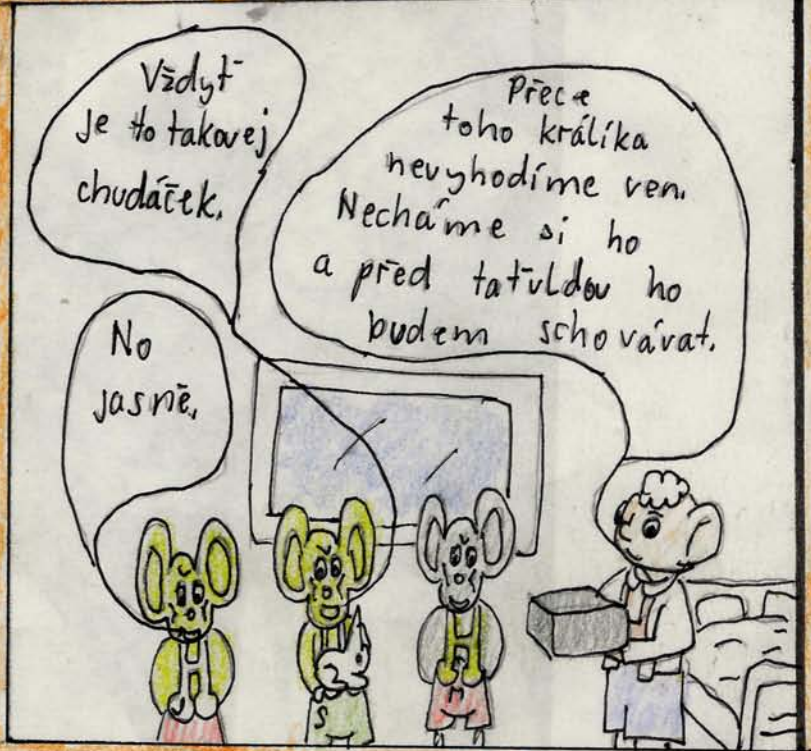 Vždyť
je to takovej
chudáček.
Přece
toho králíka
nevyhodíme ven.
Necháme si ho
a před taťuldou ho
budem schovávat.
No
jasně.
S
M